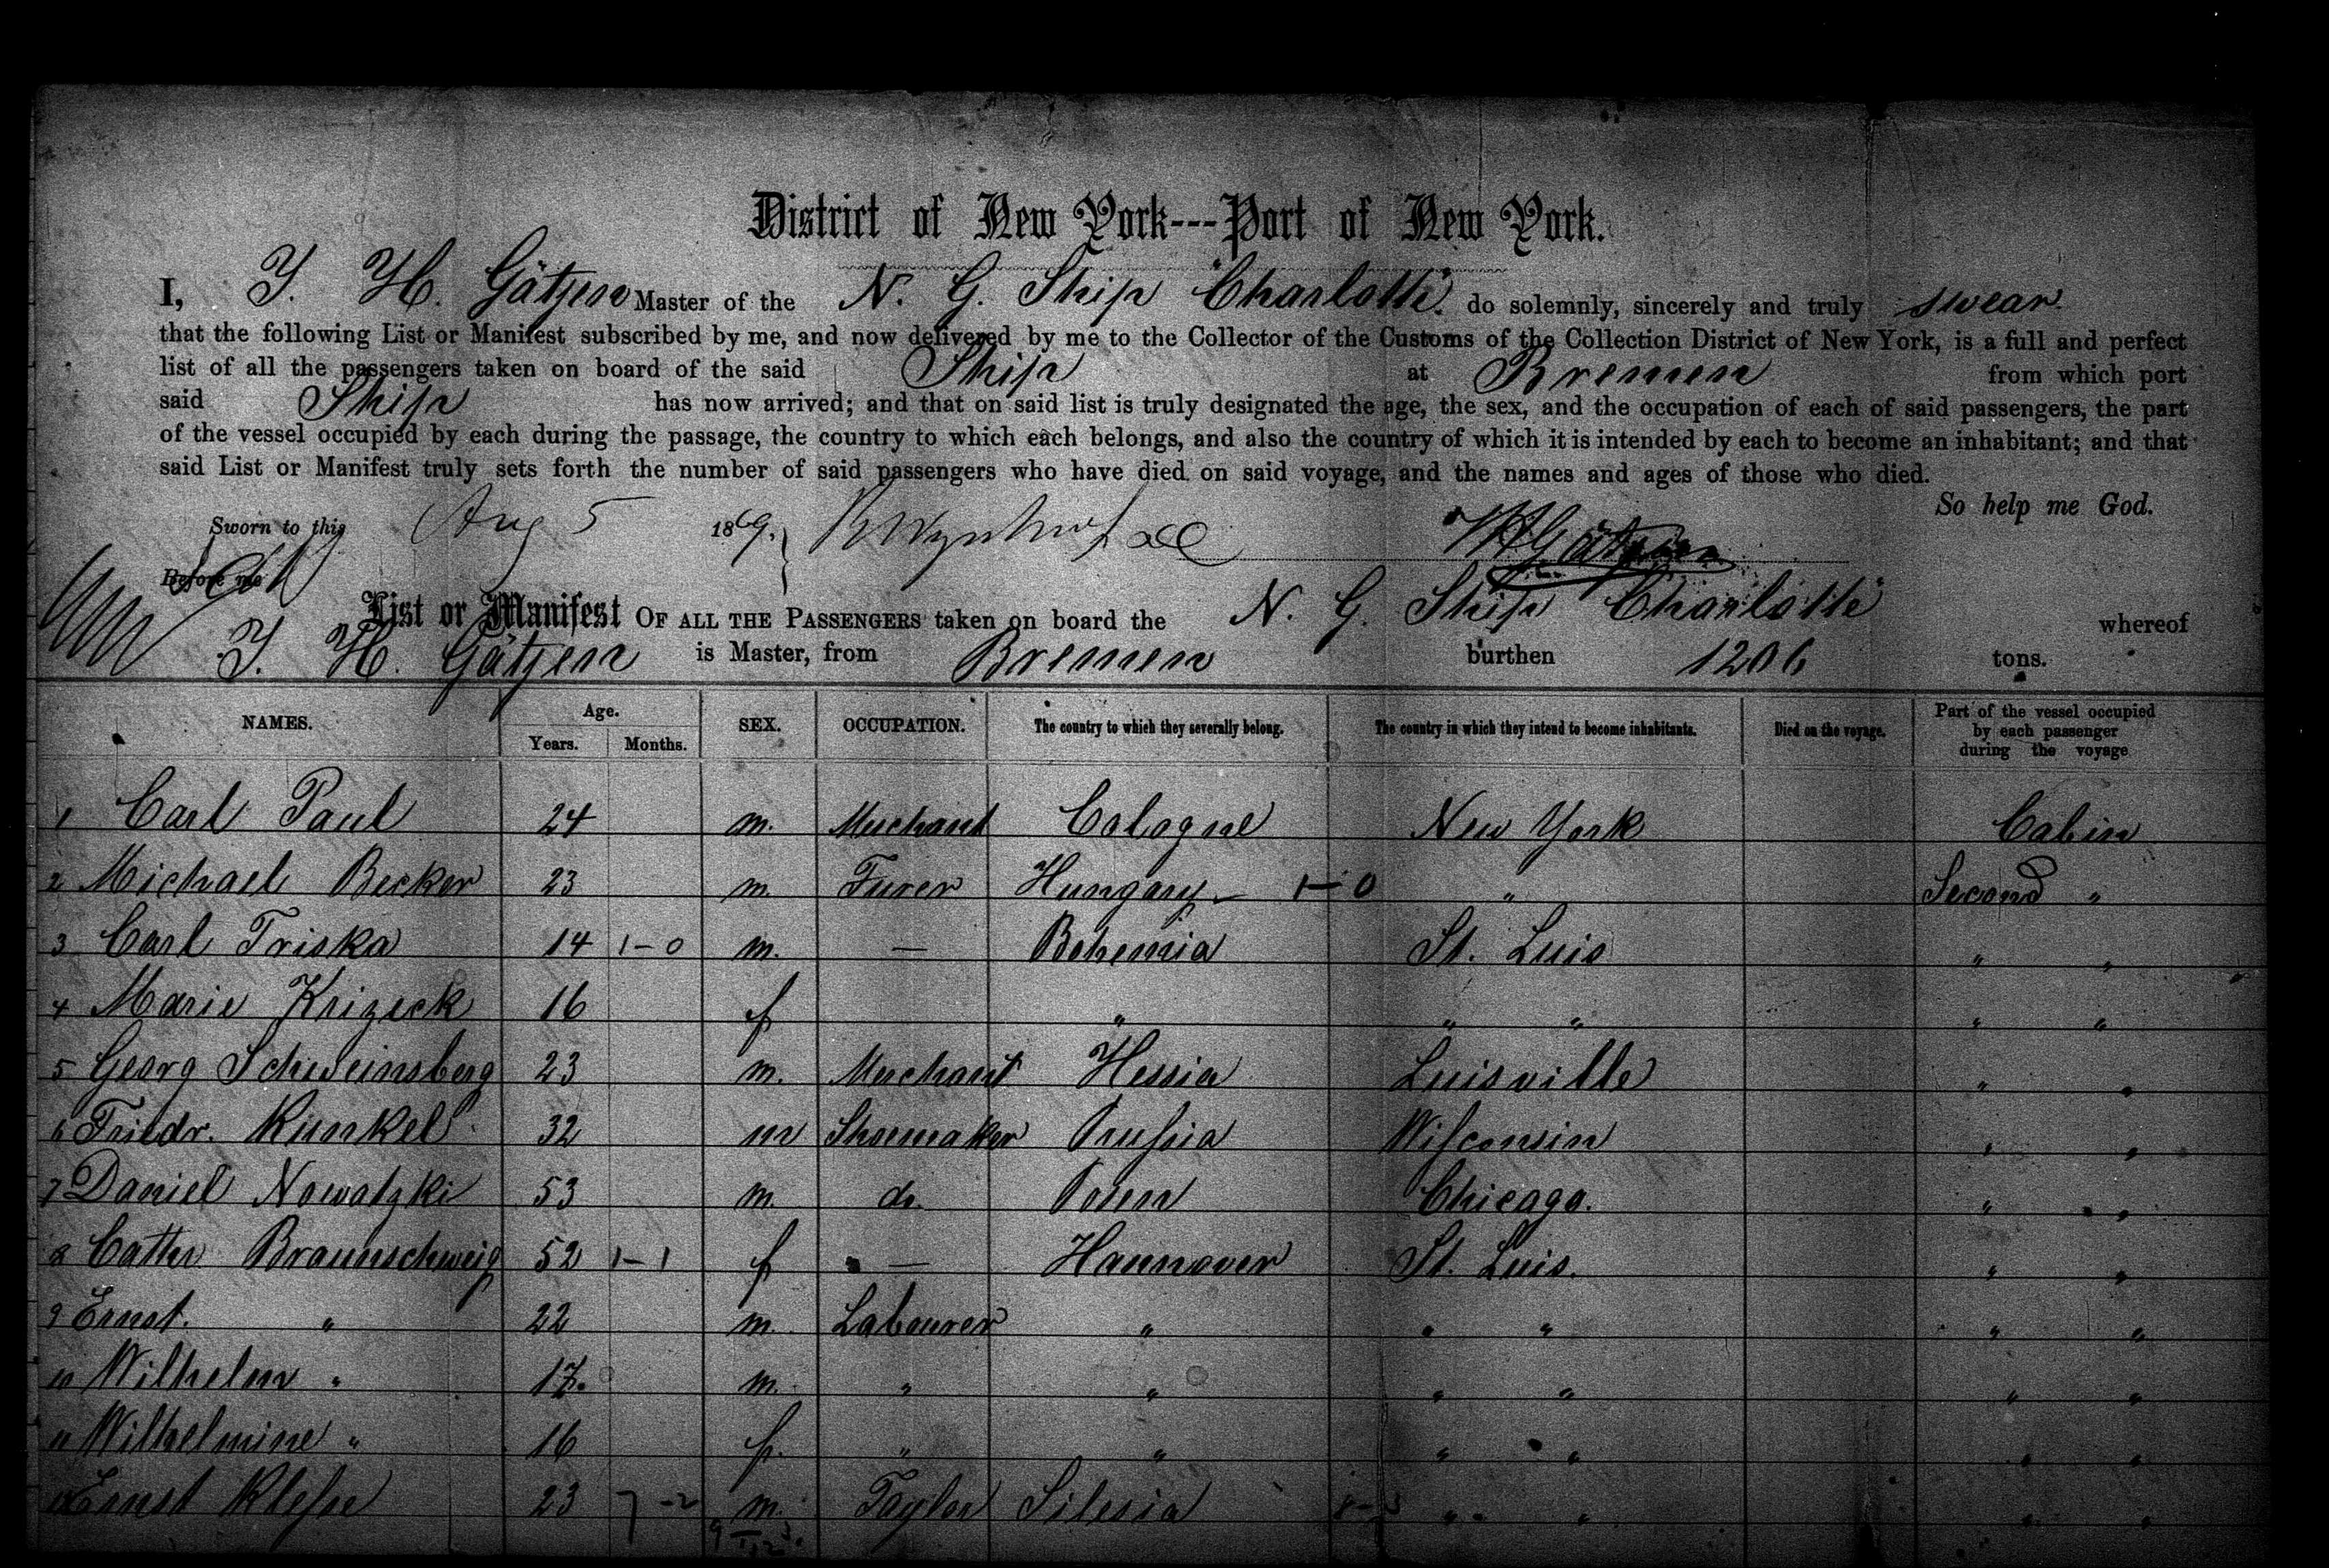 District of New York---Port of New York.
I, J. H. Gätjen Master of the N. G. Ship "Charlotte" do solemnly, sincerely and truly swear
that the following List or Manifest subscribed by me, and now delivered by me to the Collector of the Customs of the Collection District of New York, is a full and perfect
list of all the passengers taken on board of the said Ship at Bremen from which port
said Ship has now arrived; and that on said list is truly designated the age, the sex, and the occupation of each of said passengers, the part
of the vessel occupied by each during the passage, the country to which each belongs, and also the country of which it is intended by each to become an inhabitant; and that
said List or Manifest truly sets forth the number of said passengers who have died on said voyage, and the names and ages of those who died.
So help me God.
Sworn to this Aug 5 1869.
Before me
List or Manifest OF ALL THE PASSENGERS taken on board the N. G. Ship Charlotte whereof
J. H. Gätjen is Master, from Bremen burthen 1206 tons.
NAMES. Age. Years. Months. SEX. OCCUPATION. The country to which they severally belong. The country in which they intend to become inhabitants. Died on the voyage. Part of the vessel occupied by each passenger during the voyage
1 Carl Paul 24 m. Merchant Cologne New York Cabin
2 Michael Becker 23 m. Furer Hungary 1-0 " Second "
3 Carl Triska 14 1-0 m. — Bohemia St. Luis " "
4 Marie Krizeck 16 f " " " " "
5 Georg Schweinsberg 23 m. Merchant Hessia Luisville " "
6 Friedr. Kunkel 32 m Shoemaker Prussia Wisconsin " "
7 Daniel Nowatzki 53 m. do. Posen Chicago. " "
8 Cathr Braunschweig 52 1-1 f — Hannover St. Luis. " "
9 Ernst. " 22 m. Labourer " " " " "
10 Wilhelm " 17. m. " " " " " "
11 Wilhelmine " 16 f. " " " " " "
12 Ernst Klesse 23 7-2 m. Taylor Silesia " " " "